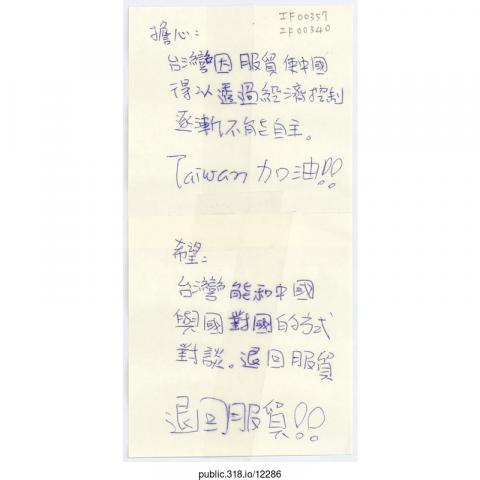 IF00357
IF00340
擔心:
台灣因服貿使中國
得以透過經濟控制
逐漸不能自主。
Taiwan 加油!!
希望:
台灣能和中國
與國對國的方式
對談。退回服貿
退回服貿!!
public.318.io/12286